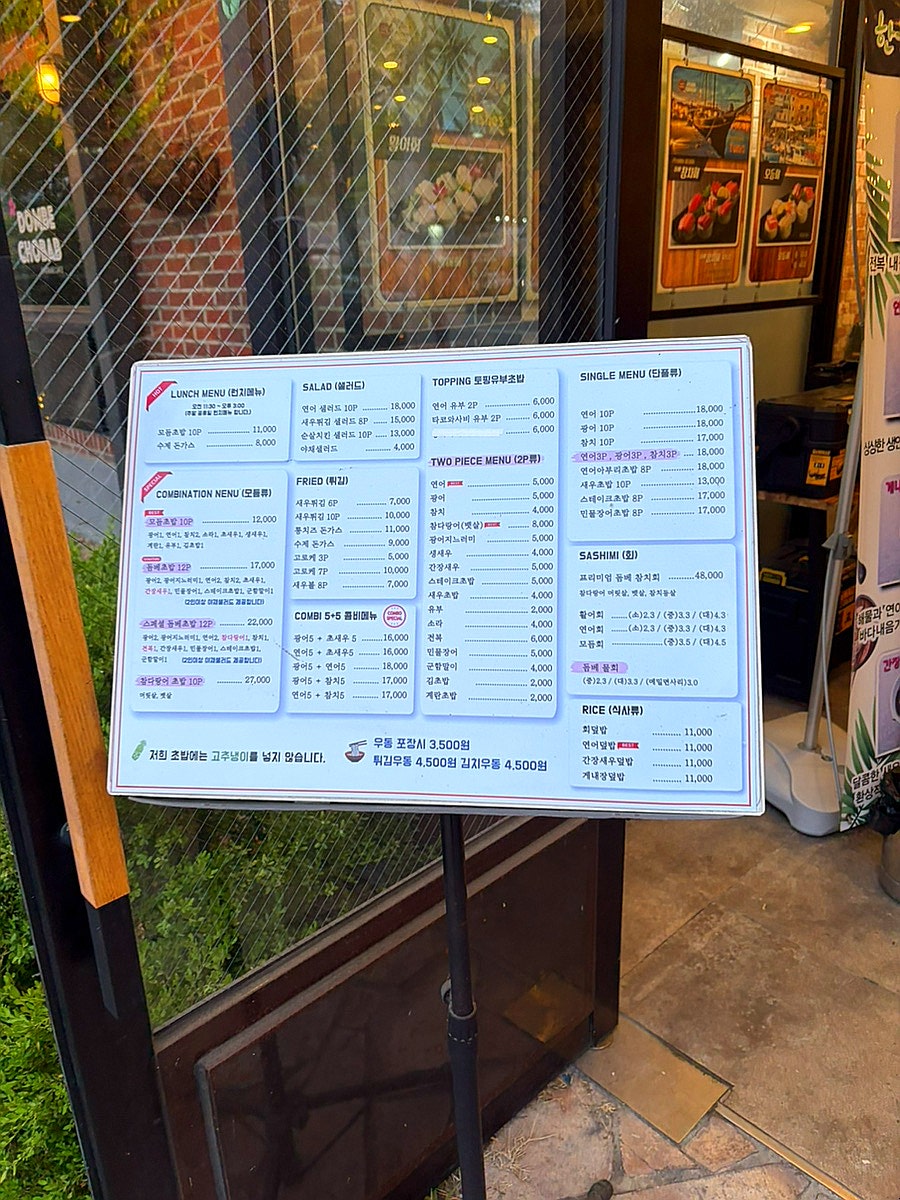 DONBE
CHOBAB
광어회
참치회
모듬회
HOT
LUNCH MENU (런치메뉴)
오전 11:30 ~ 오후 3:00
(주말 공휴일 런치메뉴 합니다.)
모듬초밥 10P 11,000
수제 돈가스 8,000
SPECIAL
COMBINATION NENU (모듬류)
BEST
모듬초밥 10P 12,000
광어1, 연어1, 참치2, 소라1, 초새우1, 생새우1,
계란1, 유부1, 김초밥1
돔베초밥 12P 17,000
광어2, 광어지느러미1, 연어2, 참치2, 초새우1,
간장새우1, 민물장어1, 스테이크초밥1, 군함말이1
(2인이상 야채샐러드 제공합니다)
스페셜 돔베초밥 12P 22,000
광어2, 광어지느러미1, 연어2, 참다랑어1, 참치1,
전복1, 간장새우1, 민물장어1, 스테이크초밥1,
군함말이1 (2인이상 야채샐러드 제공합니다)
참다랑어 초밥 10P 27,000
머릿살, 뱃살
SALAD (샐러드)
연어 샐러드 10P 18,000
새우튀김 샐러드 8P 15,000
순살치킨 샐러드 10P 13,000
야채샐러드 4,000
FRIED (튀김)
새우튀김 6P 7,000
새우튀김 10P 10,000
통치즈 돈가스 11,000
수제 돈가스 9,000
고로케 3P 5,000
고로케 7P 10,000
새우볼 8P 7,000
COMBI 5+5 콤비메뉴
COMBO
SPECIAL
광어5 + 초새우 5 16,000
연어5 + 초새우5 16,000
광어5 + 연어5 18,000
광어5 + 참치5 17,000
연어5 + 참치5 17,000
TOPPING 토핑유부초밥
연어 유부 2P 6,000
타코와사비 유부 2P 6,000
6,000
TWO PIECE MENU (2P류)
연어 BEST 5,000
광어 5,000
참치 4,000
참다랑어(뱃살) BEST 8,000
광어지느러미 5,000
생새우 4,000
간장새우 5,000
스테이크초밥 5,000
새우초밥 4,000
유부 2,000
소라 4,000
전복 6,000
민물장어 5,000
군함말이 4,000
김초밥 2,000
계란초밥 2,000
SINGLE MENU (단품류)
연어 10P 18,000
광어 10P 18,000
참치 10P 17,000
연어3P , 광어3P , 참치3P 18,000
연어아부리초밥 8P 18,000
새우초밥 10P 13,000
스테이크초밥 8P 17,000
민물장어초밥 8P 17,000
SASHIMI (회)
프리미엄 돔베 참치회 48,000
참다랑어 머릿살, 뱃살, 참치등살
활어회 (소)2.3 / (중)3.3 / (대)4.3
연어회 (소)2.3 / (중)3.3 / (대)4.3
모듬회 (중)3.5 / (대)4.5
돔베 물회
(중)2.3 / (대)3.3 / (메밀면사리)3.0
RICE (식사류)
회덮밥 11,000
연어덮밥 BEST 11,000
간장새우덮밥 11,000
게내장덮밥 11,000
저희 초밥에는 고추냉이를 넣지 않습니다.
우동 포장시 3,500원
튀김우동 4,500원 김치우동 4,500원